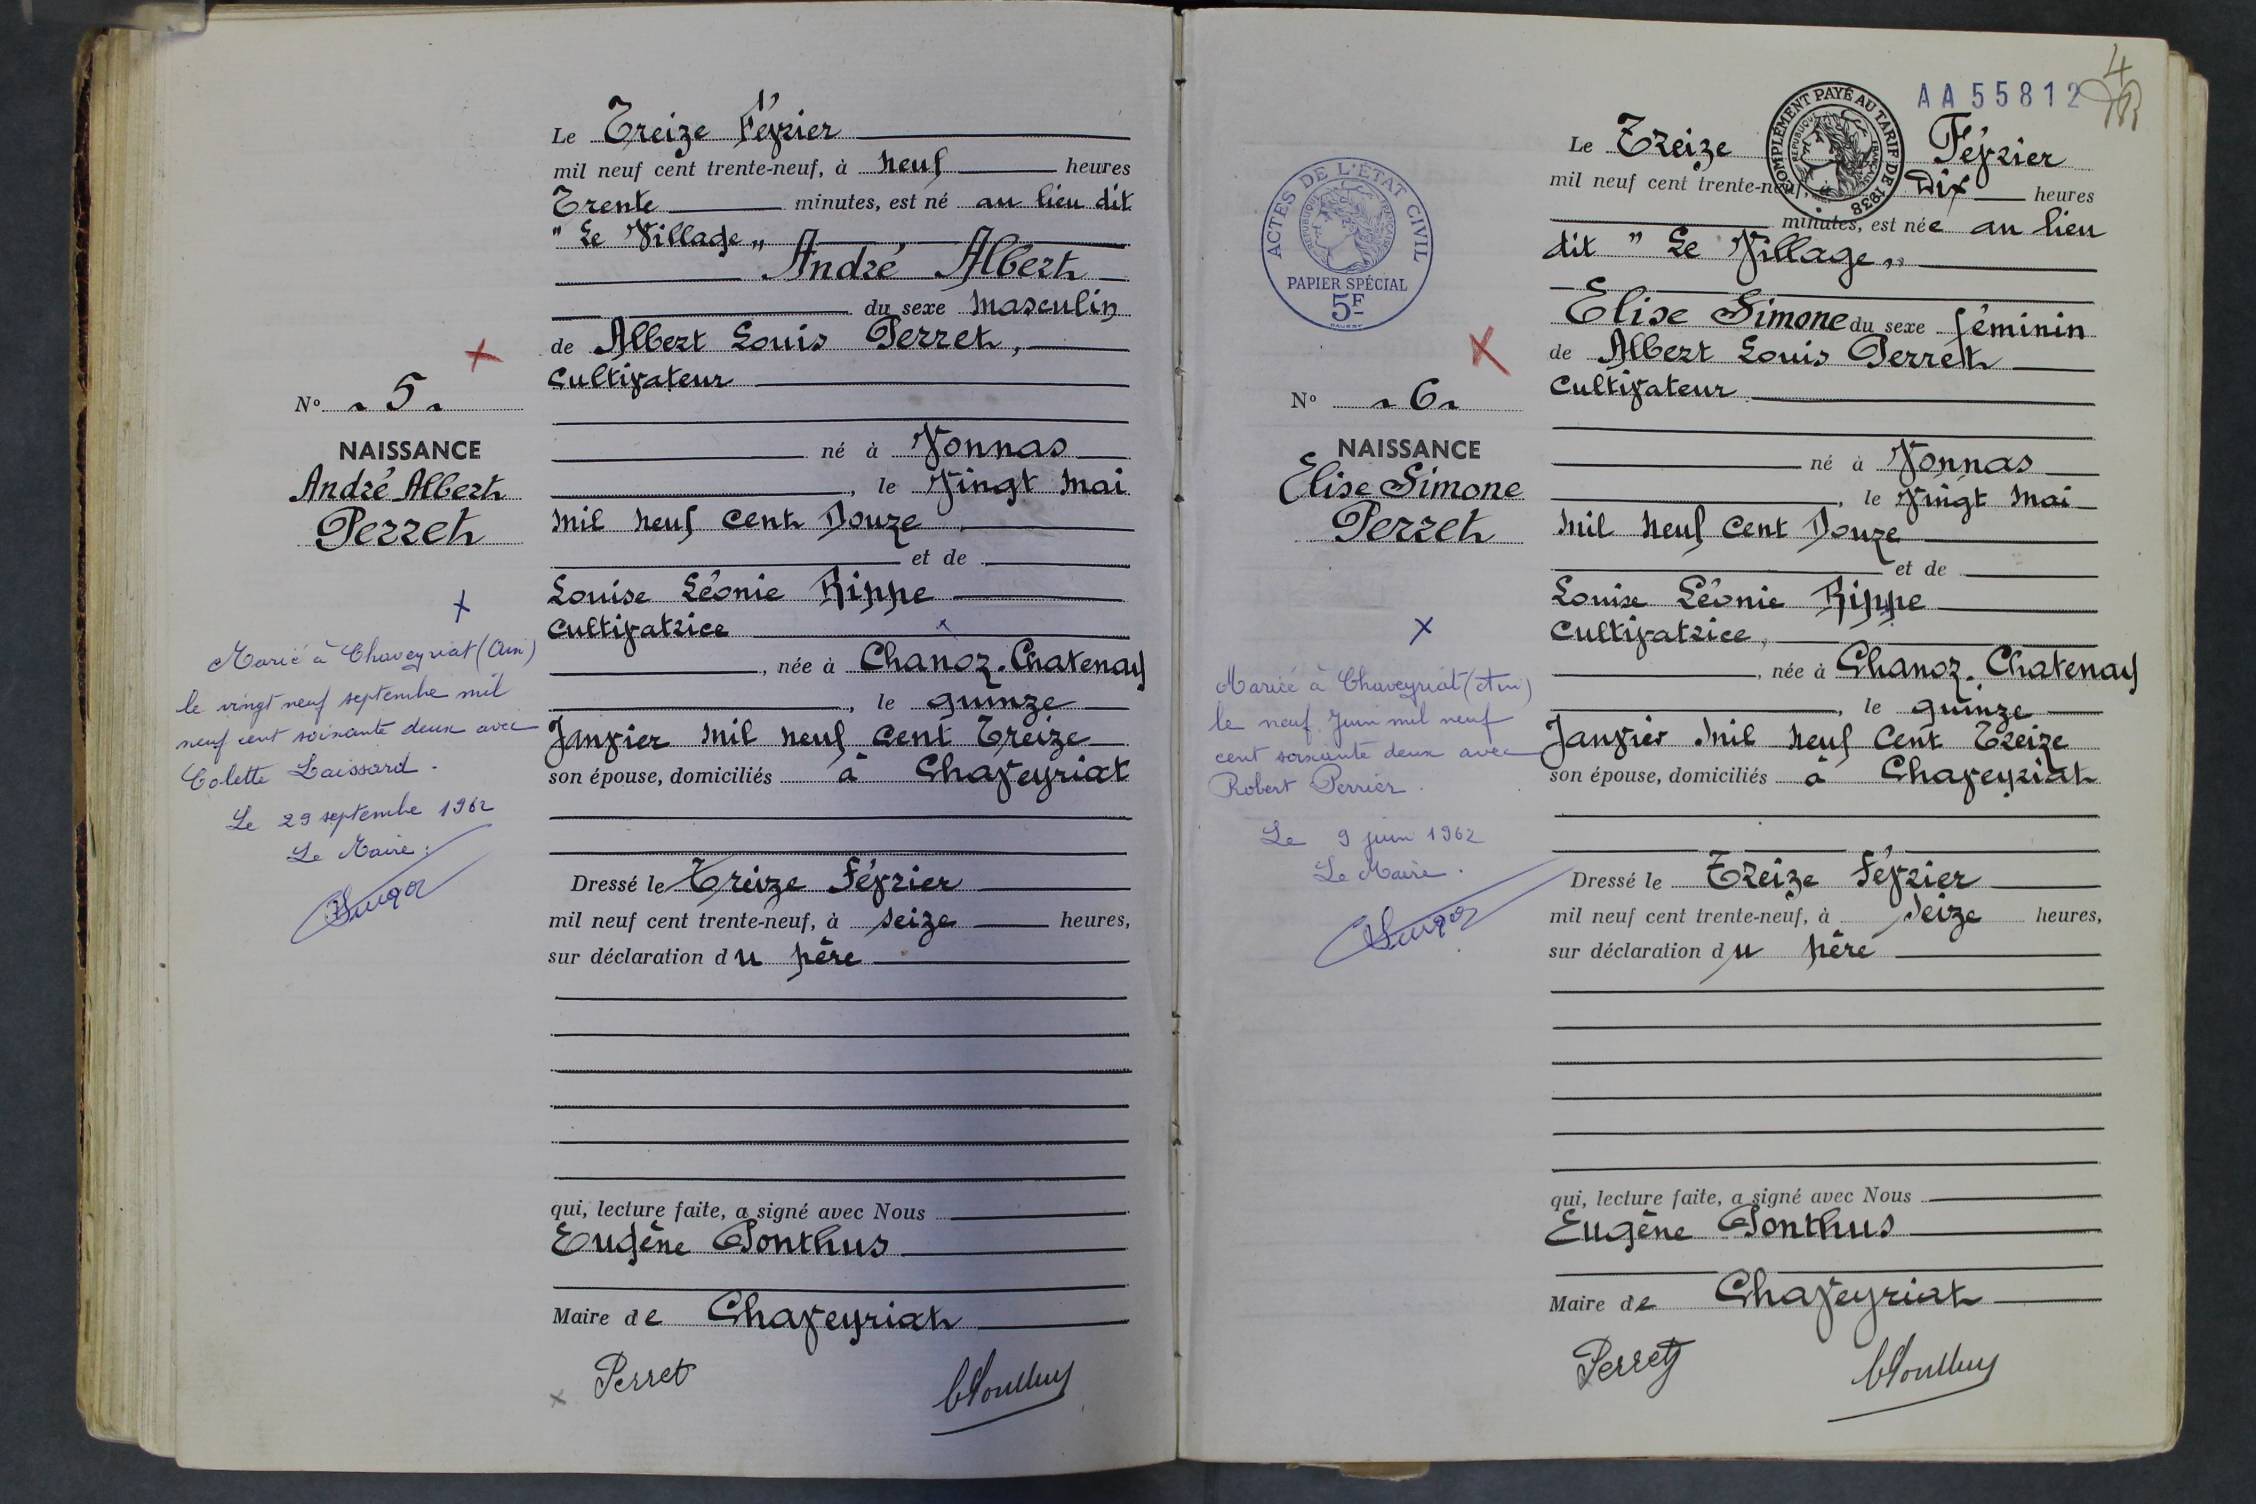 Le Treize Février
mil neuf cent trente-neuf, à neuf heures
Trente minutes, est né au lieu dit
" Le Village "
André Albert
du sexe masculin
de Albert Louis Perret,
Cultivateur
né à Vonnas
, le Vingt Mai
mil neuf cent Douze
et de
Louise Léonie Rippe
Cultivatrice
, née à Chanoz-Chatenay
, le quinze
Janvier mil neuf cent Treize
son épouse, domiciliés à Chaveyriat
Dressé le Treize Février
mil neuf cent trente-neuf, à seize heures,
sur déclaration du père
qui, lecture faite, a signé avec Nous
Eugène Ponthus
Maire de Chaveyriat
Perret
N° 5
NAISSANCE
André Albert
Perret
Marié à Chaveyriat (Ain)
le vingt neuf septembre mil
neuf cent soixante deux avec
Colette Laissard.
Le 29 septembre 1962
Le Maire :
4
AA55812
COMPLÉMENT PAYÉ AU TARIF DE 1938
RÉPUBLIQUE FRANÇAISE
Le Treize Février
mil neuf cent trente-neuf, Dix heures
minutes, est née au lieu
dit " Le Village "
Elise Simone du sexe féminin
de Albert Louis Perret
Cultivateur
né à Vonnas
, le Vingt Mai
mil neuf cent Douze
et de
Louise Léonie Rippe
Cultivatrice,
, née à Chanoz-Chatenay
, le quinze
Janvier mil neuf cent Treize
son épouse, domiciliés à Chaveyriat
Dressé le Treize Février
mil neuf cent trente-neuf, à seize heures,
sur déclaration du père
qui, lecture faite, a signé avec Nous
Eugène Ponthus
Maire de Chaveyriat
Perret
ACTES DE L'ÉTAT CIVIL
RÉPUBLIQUE FRANÇAISE
PAPIER SPÉCIAL
5F
N° 6
NAISSANCE
Elise Simone
Perret
Mariée à Chaveyriat (Ain)
le neuf Juin mil neuf
cent soixante deux avec
Robert Perrier.
Le 9 juin 1962
Le Maire.